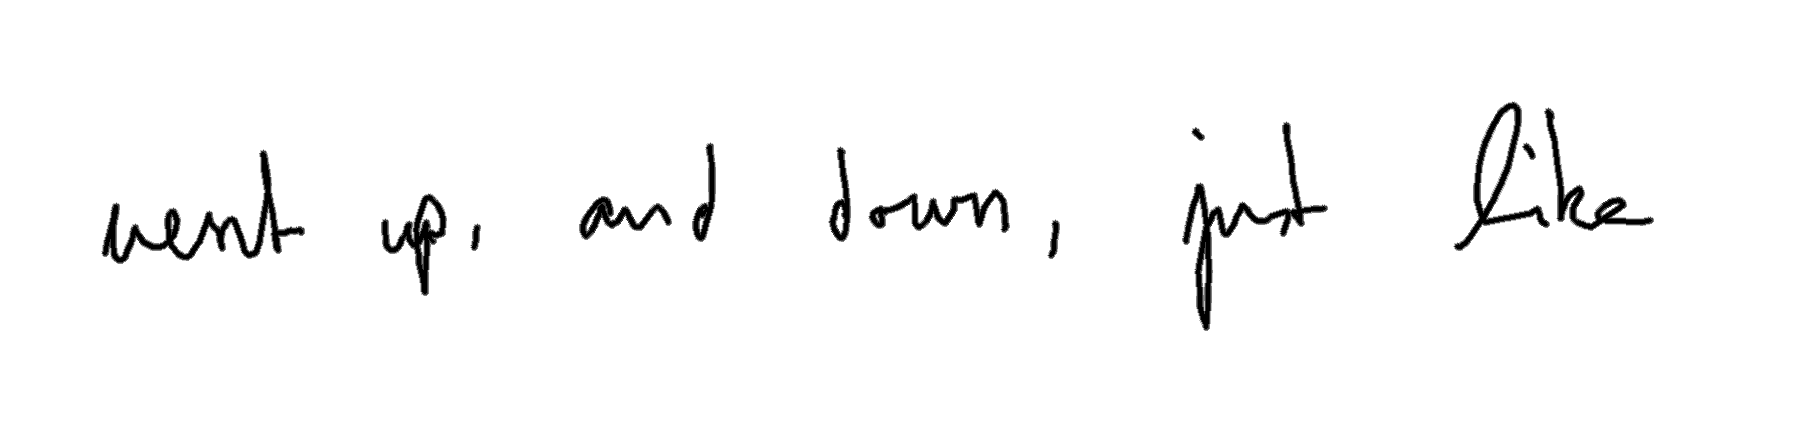 went up, and down, just like